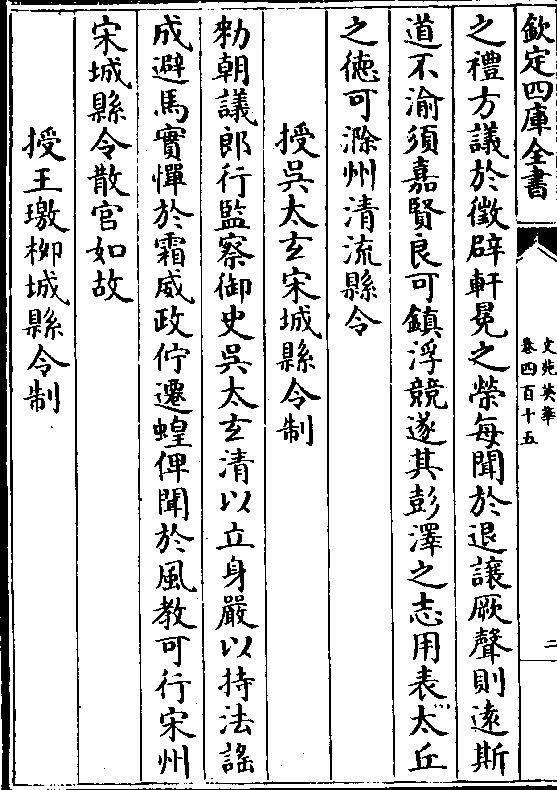 欽定四庫全書
文苑英華
卷四百十五
二
之禮方議於徵辟軒冕之榮每聞於退讓厥聲則逺斯
道不渝須嘉賢良可鎮浮競遂其彭澤之志用表太丘
之徳可滁州清流縣令
授吳太玄宋城縣令制
勅朝議郎行監察御史吳太玄清以立身嚴以持法謠
成避馬實憚於霜威政佇遷蝗俾聞於風教可行宋州
宋城縣令散官如故
授王璥栁城縣令制